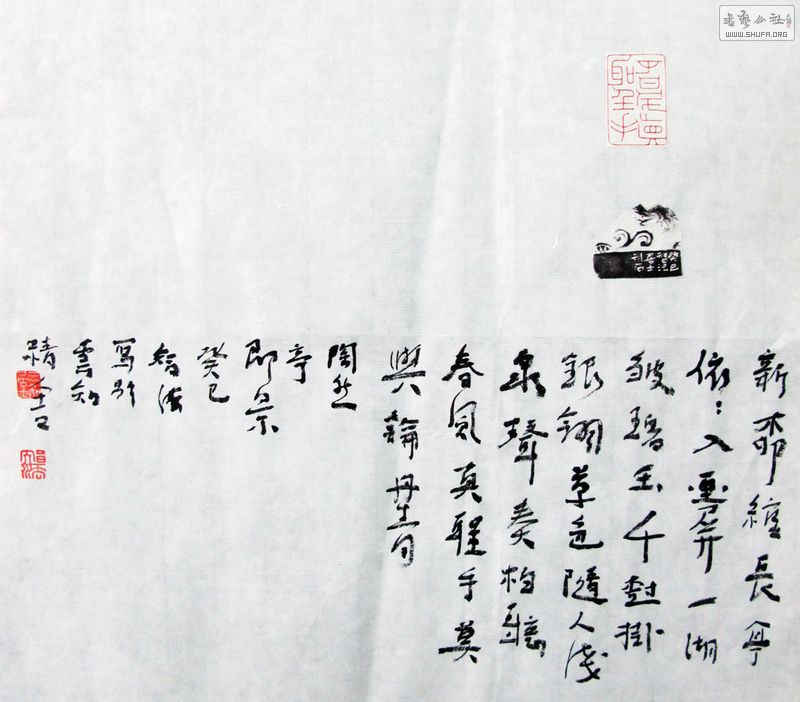 書藝公社
WWW.SHUFA.ORG
新柳繞長亭
依:入畫屏一湖
皺碧玉千樹掛
銀翎草色隨人淺
泉聲奏拍聽
春風真聖手莫
與論丹青
陶然
亭
即景
癸巳
寫於